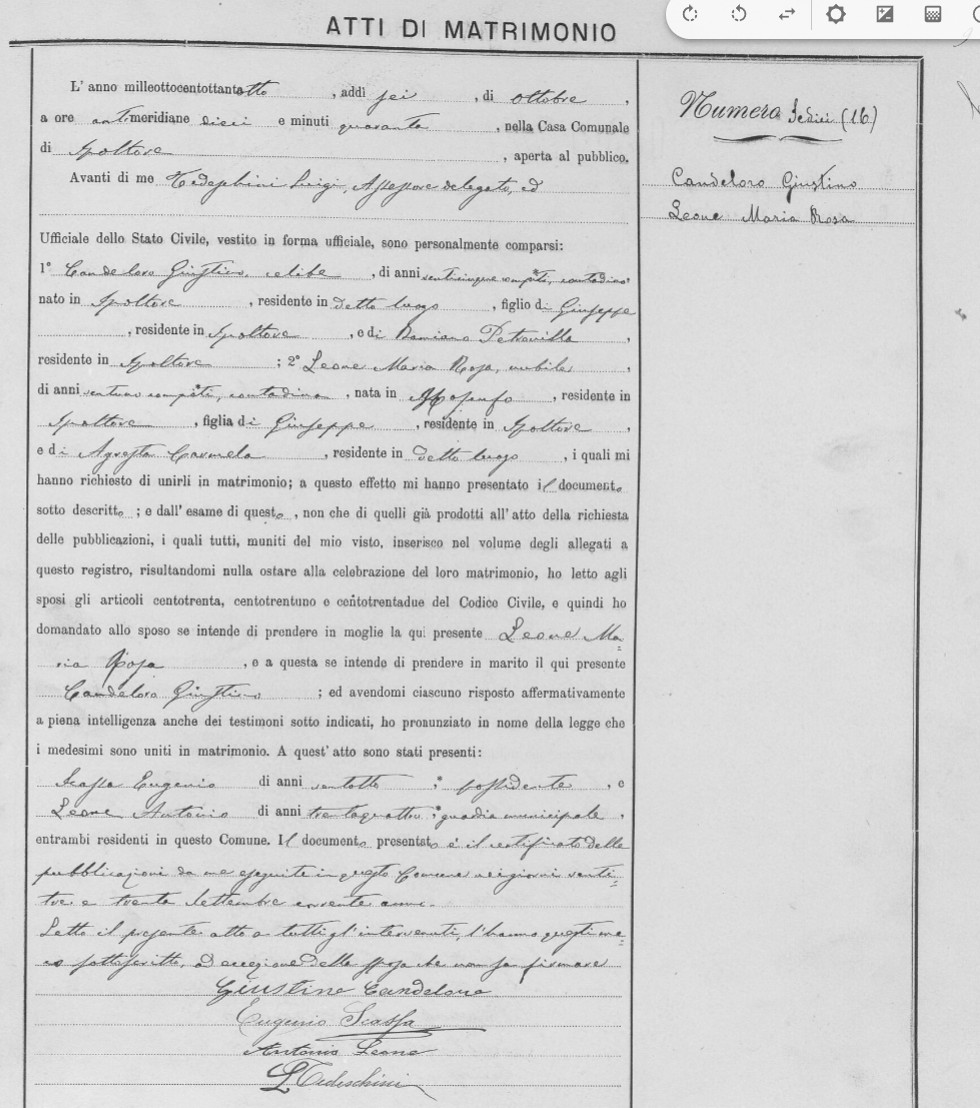 ATTI DI MATRIMONIO
L' anno milleottocentottantotto, addì sei, di ottobre,
a ore antimeridiane dieci e minuti quaranta, nella Casa Comunale
di Spoltore, aperta al pubblico.
Avanti di me Tedeschini Luigi, Assessore delegato, ed
Ufficiale dello Stato Civile, vestito in forma ufficiale, sono personalmente comparsi:
1° Candeloro Giustino, celibe, di anni venticinque compiti, contadino,
nato in Spoltore, residente in detto luogo, figlio di Giuseppe
, residente in Spoltore, e di Damiano Petronilla,
residente in Spoltore; 2° Leone Maria Rosa, nubile,
di anni ventuno compiti, contadina, nata in Moscufo, residente in
Spoltore, figlia di Giuseppe, residente in Spoltore,
e di Agresta Carmela, residente in detto luogo, i quali mi
hanno richiesto di unirli in matrimonio; a questo effetto mi hanno presentato il documento
sotto descritto; e dall' esame di questo, non che di quelli già prodotti all' atto della richiesta
delle pubblicazioni, i quali tutti, muniti del mio visto, inserisco nel volume degli allegati a
questo registro, risultandomi nulla ostare alla celebrazione del loro matrimonio, ho letto agli
sposi gli articoli centotrenta, centotrentuno e centotrentadue del Codice Civile, e quindi ho
domandato allo sposo se intende di prendere in moglie la qui presente Leone Ma=
ria Rosa, e a questa se intende di prendere in marito il qui presente
Candeloro Giustino; ed avendomi ciascuno risposto affermativamente
a piena intelligenza anche dei testimoni sotto indicati, ho pronunziato in nome della legge che
i medesimi sono uniti in matrimonio. A quest' atto sono stati presenti:
Scassa Eugenio di anni ventotto, possidente, e
Leone Antonio di anni trentaquattro, guardia municipale,
entrambi residenti in questo Comune. Il documento presentato è il certificato delle
pubblicazioni da me eseguite in questo Comune nei giorni venti=
tre e trenta Settembre corrente anno.
Letto il presente atto a tutti gl'intervenuti, l'hanno questi me=
co sottoscritto, ad eccezione della sposa che non sa firmare
Giustino Candeloro
Eugenio Scassa
Antonio Leone
L Tedeschini
Numero Sedici (16)
Candeloro Giustino
Leone Maria Rosa